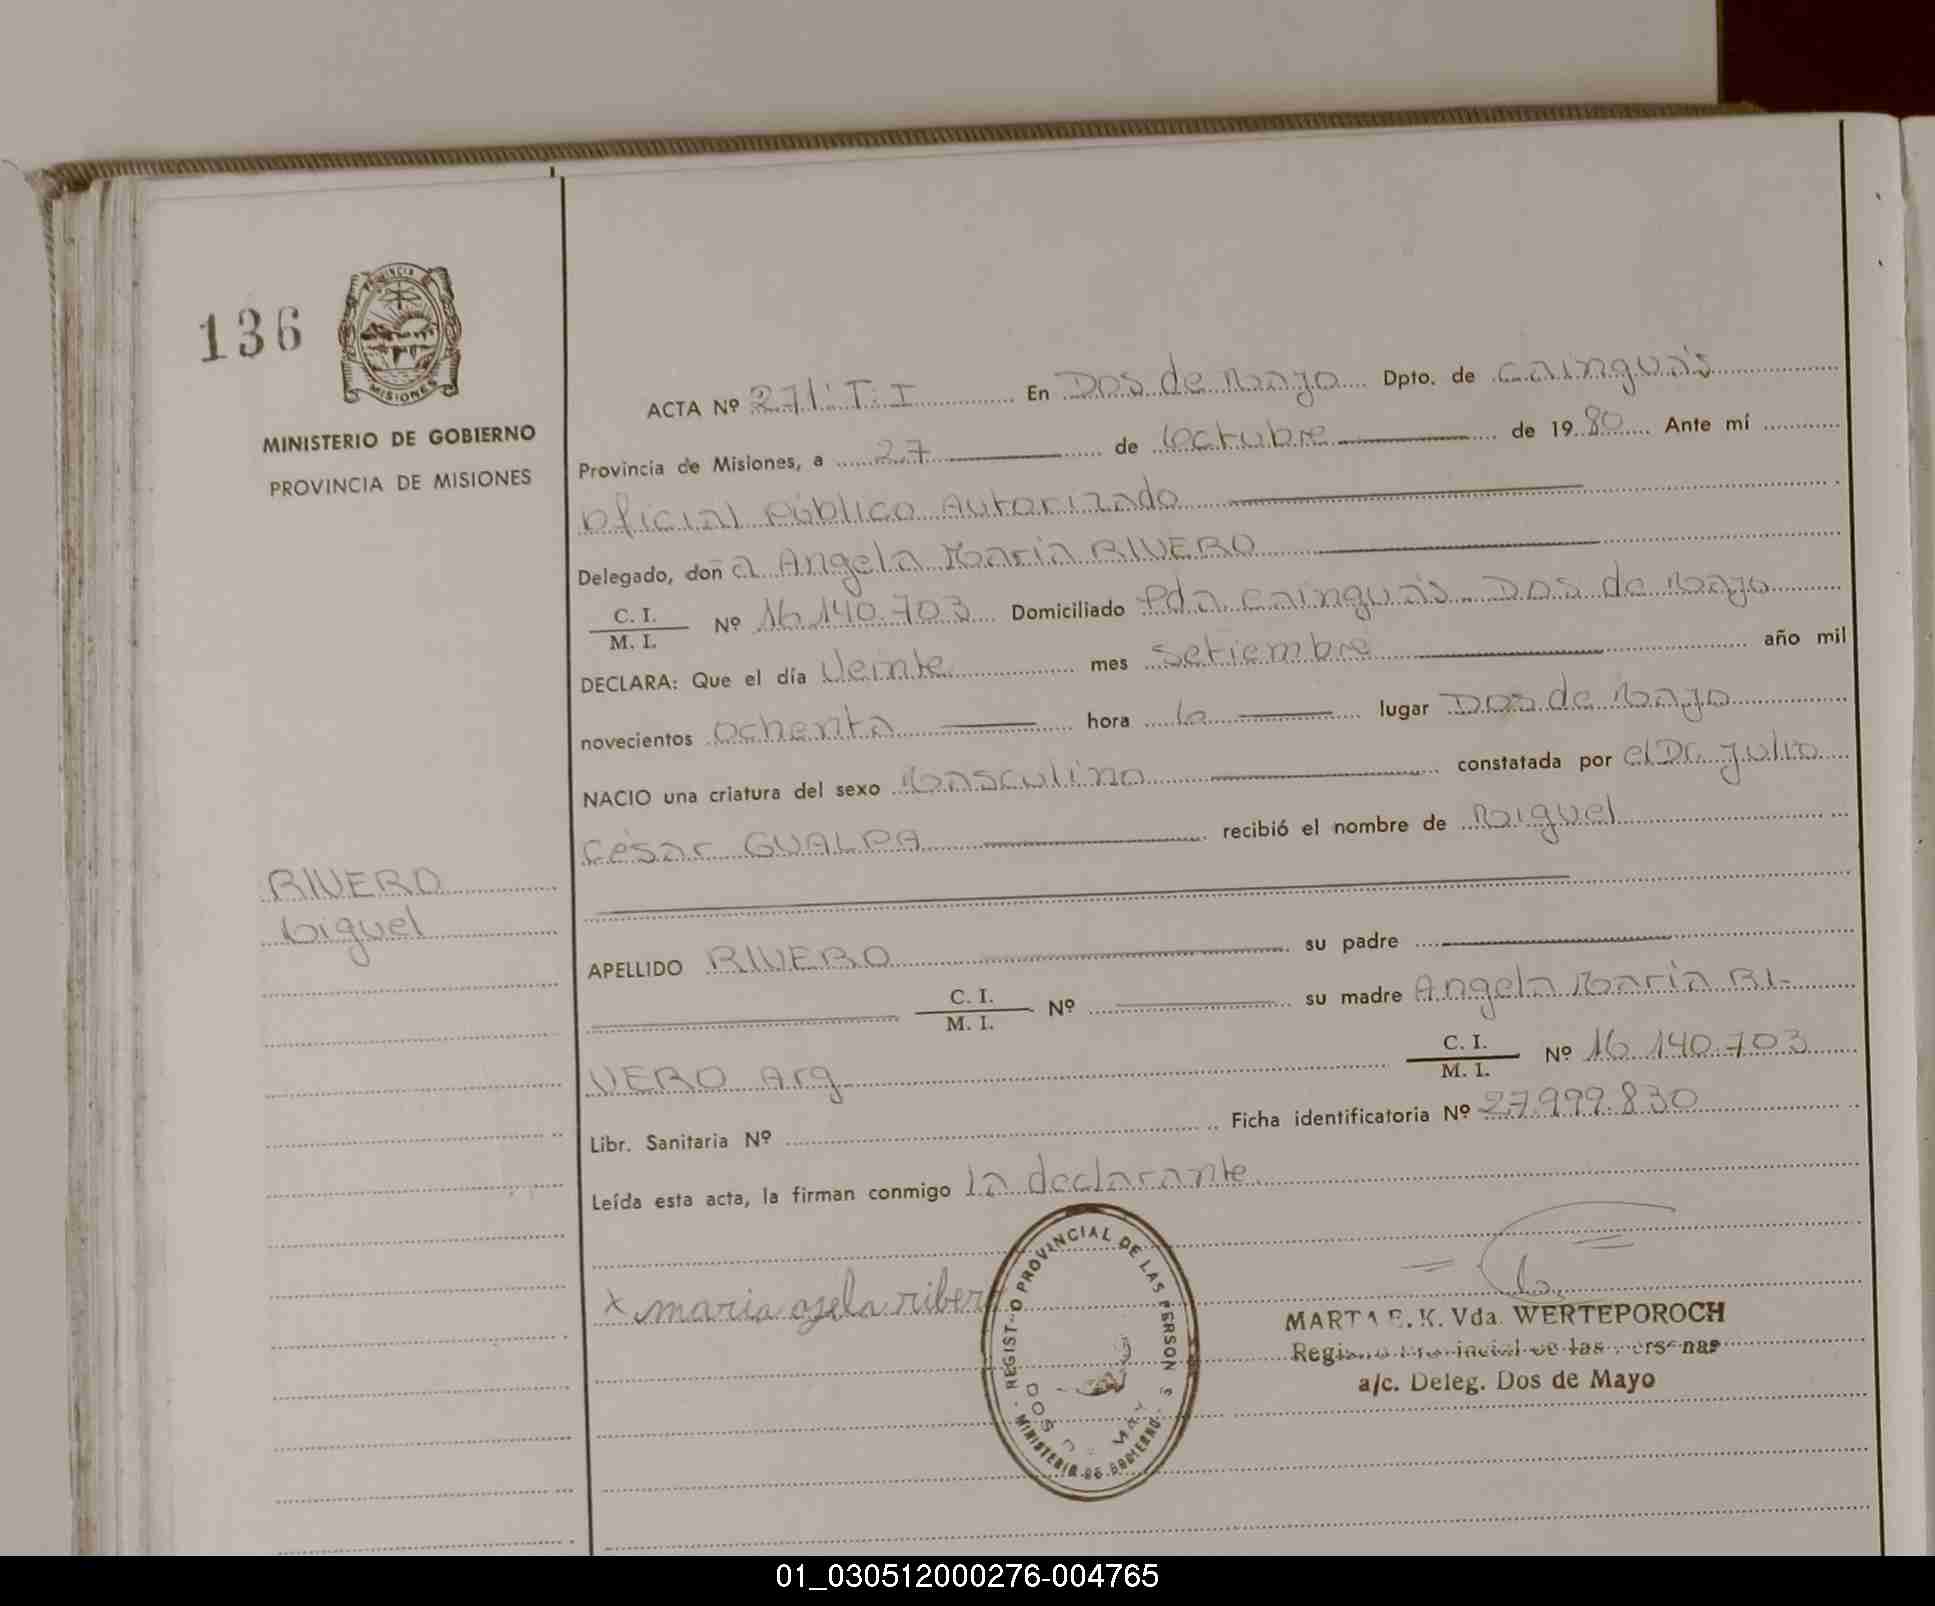 136
PROVINCIA
MISIONES
MINISTERIO DE GOBIERNO
PROVINCIA DE MISIONES
ACTA Nº 271: T: I En Dos de Mayo Dpto. de Cainguás
Provincia de Misiones, a 27 de octubre de 1980 Ante mí
Oficial Público Autorizado
Delegado, doña Angela Maria RIVERO
C. I.
M. I. Nº 16.140.703 Domiciliado Pda Cainguás Dos de Mayo
DECLARA: Que el día Veinte mes Setiembre año mil
novecientos ochenta hora 16 lugar Dos de Mayo
NACIO una criatura del sexo Masculino constatada por el Dr. Julio
César GUALPA recibió el nombre de Miguel
RIVERO
Miguel
APELLIDO RIVERO su padre
C. I.
M. I. Nº su madre Angela Maria RI-
VERO Arg C. I.
M. I. Nº 16.140.703
Libr. Sanitaria Nº Ficha identificatoria Nº 27.999.830
Leída esta acta, la firman conmigo la declarante
x maria ajela riber
REGISTRO PROVINCIAL DE LAS PERSONAS
DOS DE MAYO
MINISTERIO DE GOBIERNO
MARTA E. K. Vda. WERTEPOROCH
Registro Provincial de las Personas
a/c. Deleg. Dos de Mayo
01_030512000276-004765